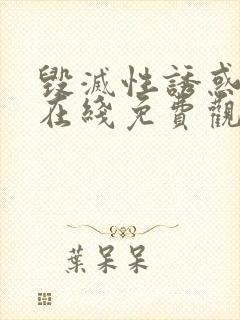 毀滅性誘惑
在綫免費觀
葉呆呆